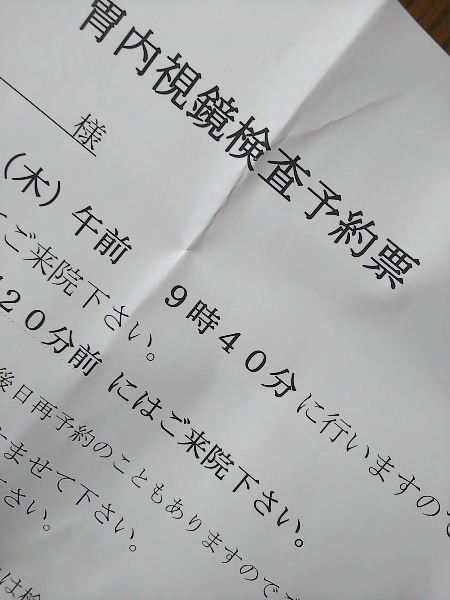 胃内視鏡検査予約票
様
（木）午前 9時40分に行いますので
てご来院下さい。
20分前にはご来院下さい。
後日再予約のこともありますのでご
ませて下さい。
下さい。
は検